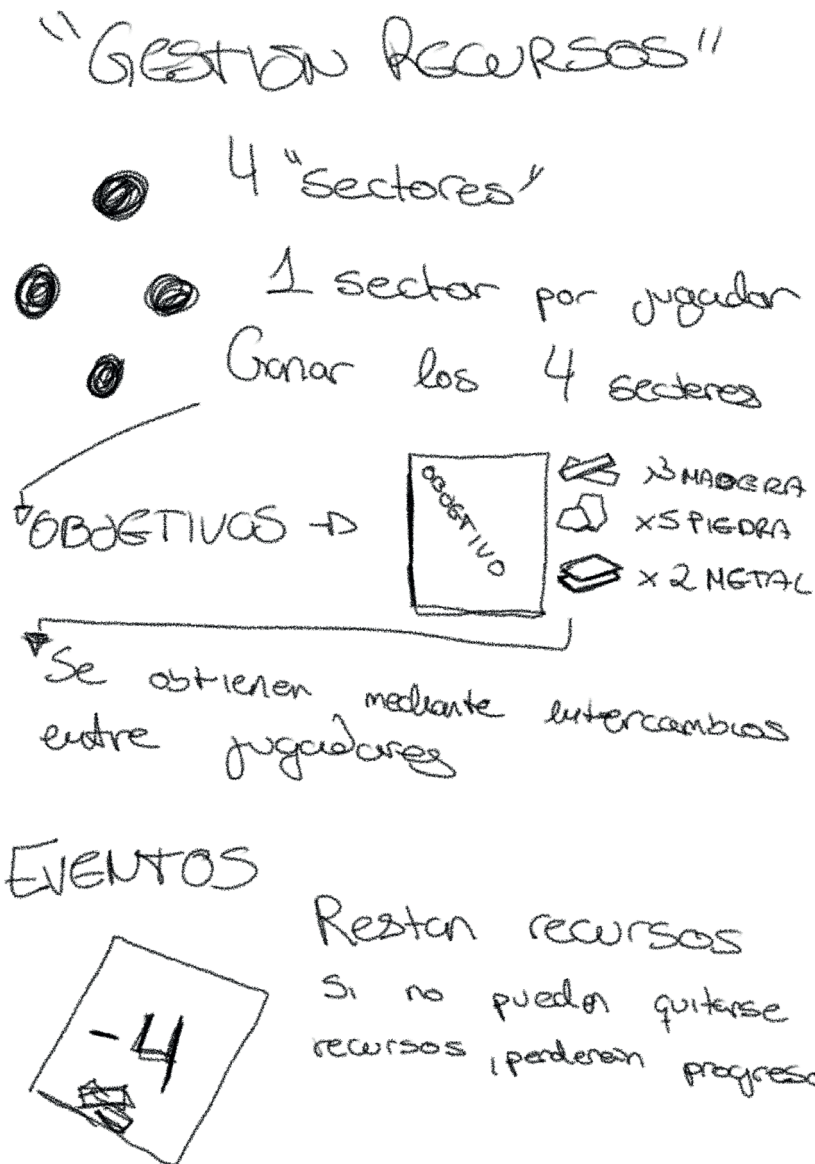 "GESTION RECURSOS"
4 "sectores"
1 sector por jugador
Ganar los 4 sectores
OBJETIVOS →
OBJETIVO
x3 MADERA
x5 PIEDRA
x2 METAL
Se obtienen mediante intercambios
entre jugadores
EVENTOS
-4
Restan recursos
Si no pueden quitarse
recursos, perderán progreso